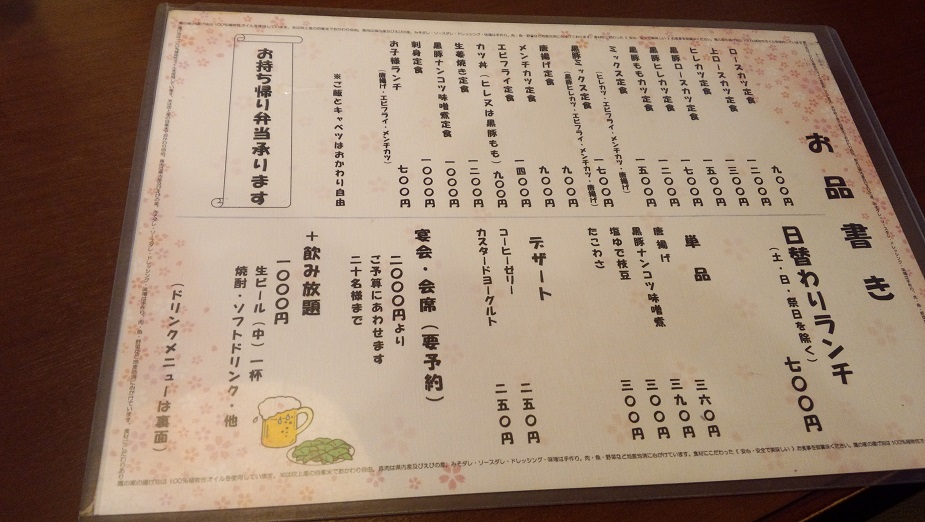 お品書き
日替わりランチ 七〇〇円
(土・日・祭日を除く)
ロースカツ定食 九〇〇円
上ロースカツ定食 一二〇〇円
ヒレカツ定食 一三〇〇円
黒豚ロースカツ定食 一五〇〇円
黒豚ヒレカツ定食 一七〇〇円
黒豚ももカツ定食
ミックス定食 一五〇〇円
(ヒレカツ・エビフライ・メンチカツ・唐揚げ)
黒豚ミックス定食 一七〇〇円
(黒豚ヒレカツ・エビフライ・メンチカツ・唐揚げ)
唐揚げ定食 九〇〇円
メンチカツ定食 九〇〇円
エビフライ定食 一四〇〇円
カツ丼(ヒレ又は黒豚もも) 九〇〇円
生姜焼き定食 一二〇〇円
黒豚ナンコツ味噌煮定食 一〇〇〇円
刺身定食 一〇〇〇円
お子様ランチ 七〇〇円
(唐揚げ・エビフライ・メンチカツ)
※ご飯とキャベツはおかわり自由
お持ち帰り弁当承ります
単品
唐揚げ 三六〇円
黒豚ナンコツ味噌煮 三九〇円
塩ゆで枝豆 三〇〇円
たこわさ 三〇〇円
デザート
コーヒーゼリー 二五〇円
カスタードヨーグルト 二五〇円
宴会・会席(要予約)
二〇〇〇円より
ご予算にあわせます
二十名様まで
+飲み放題
一〇〇〇円
生ビール(中)一杯
焼酎・ソフトドリンク・他
(ドリンクメニューは裏面)